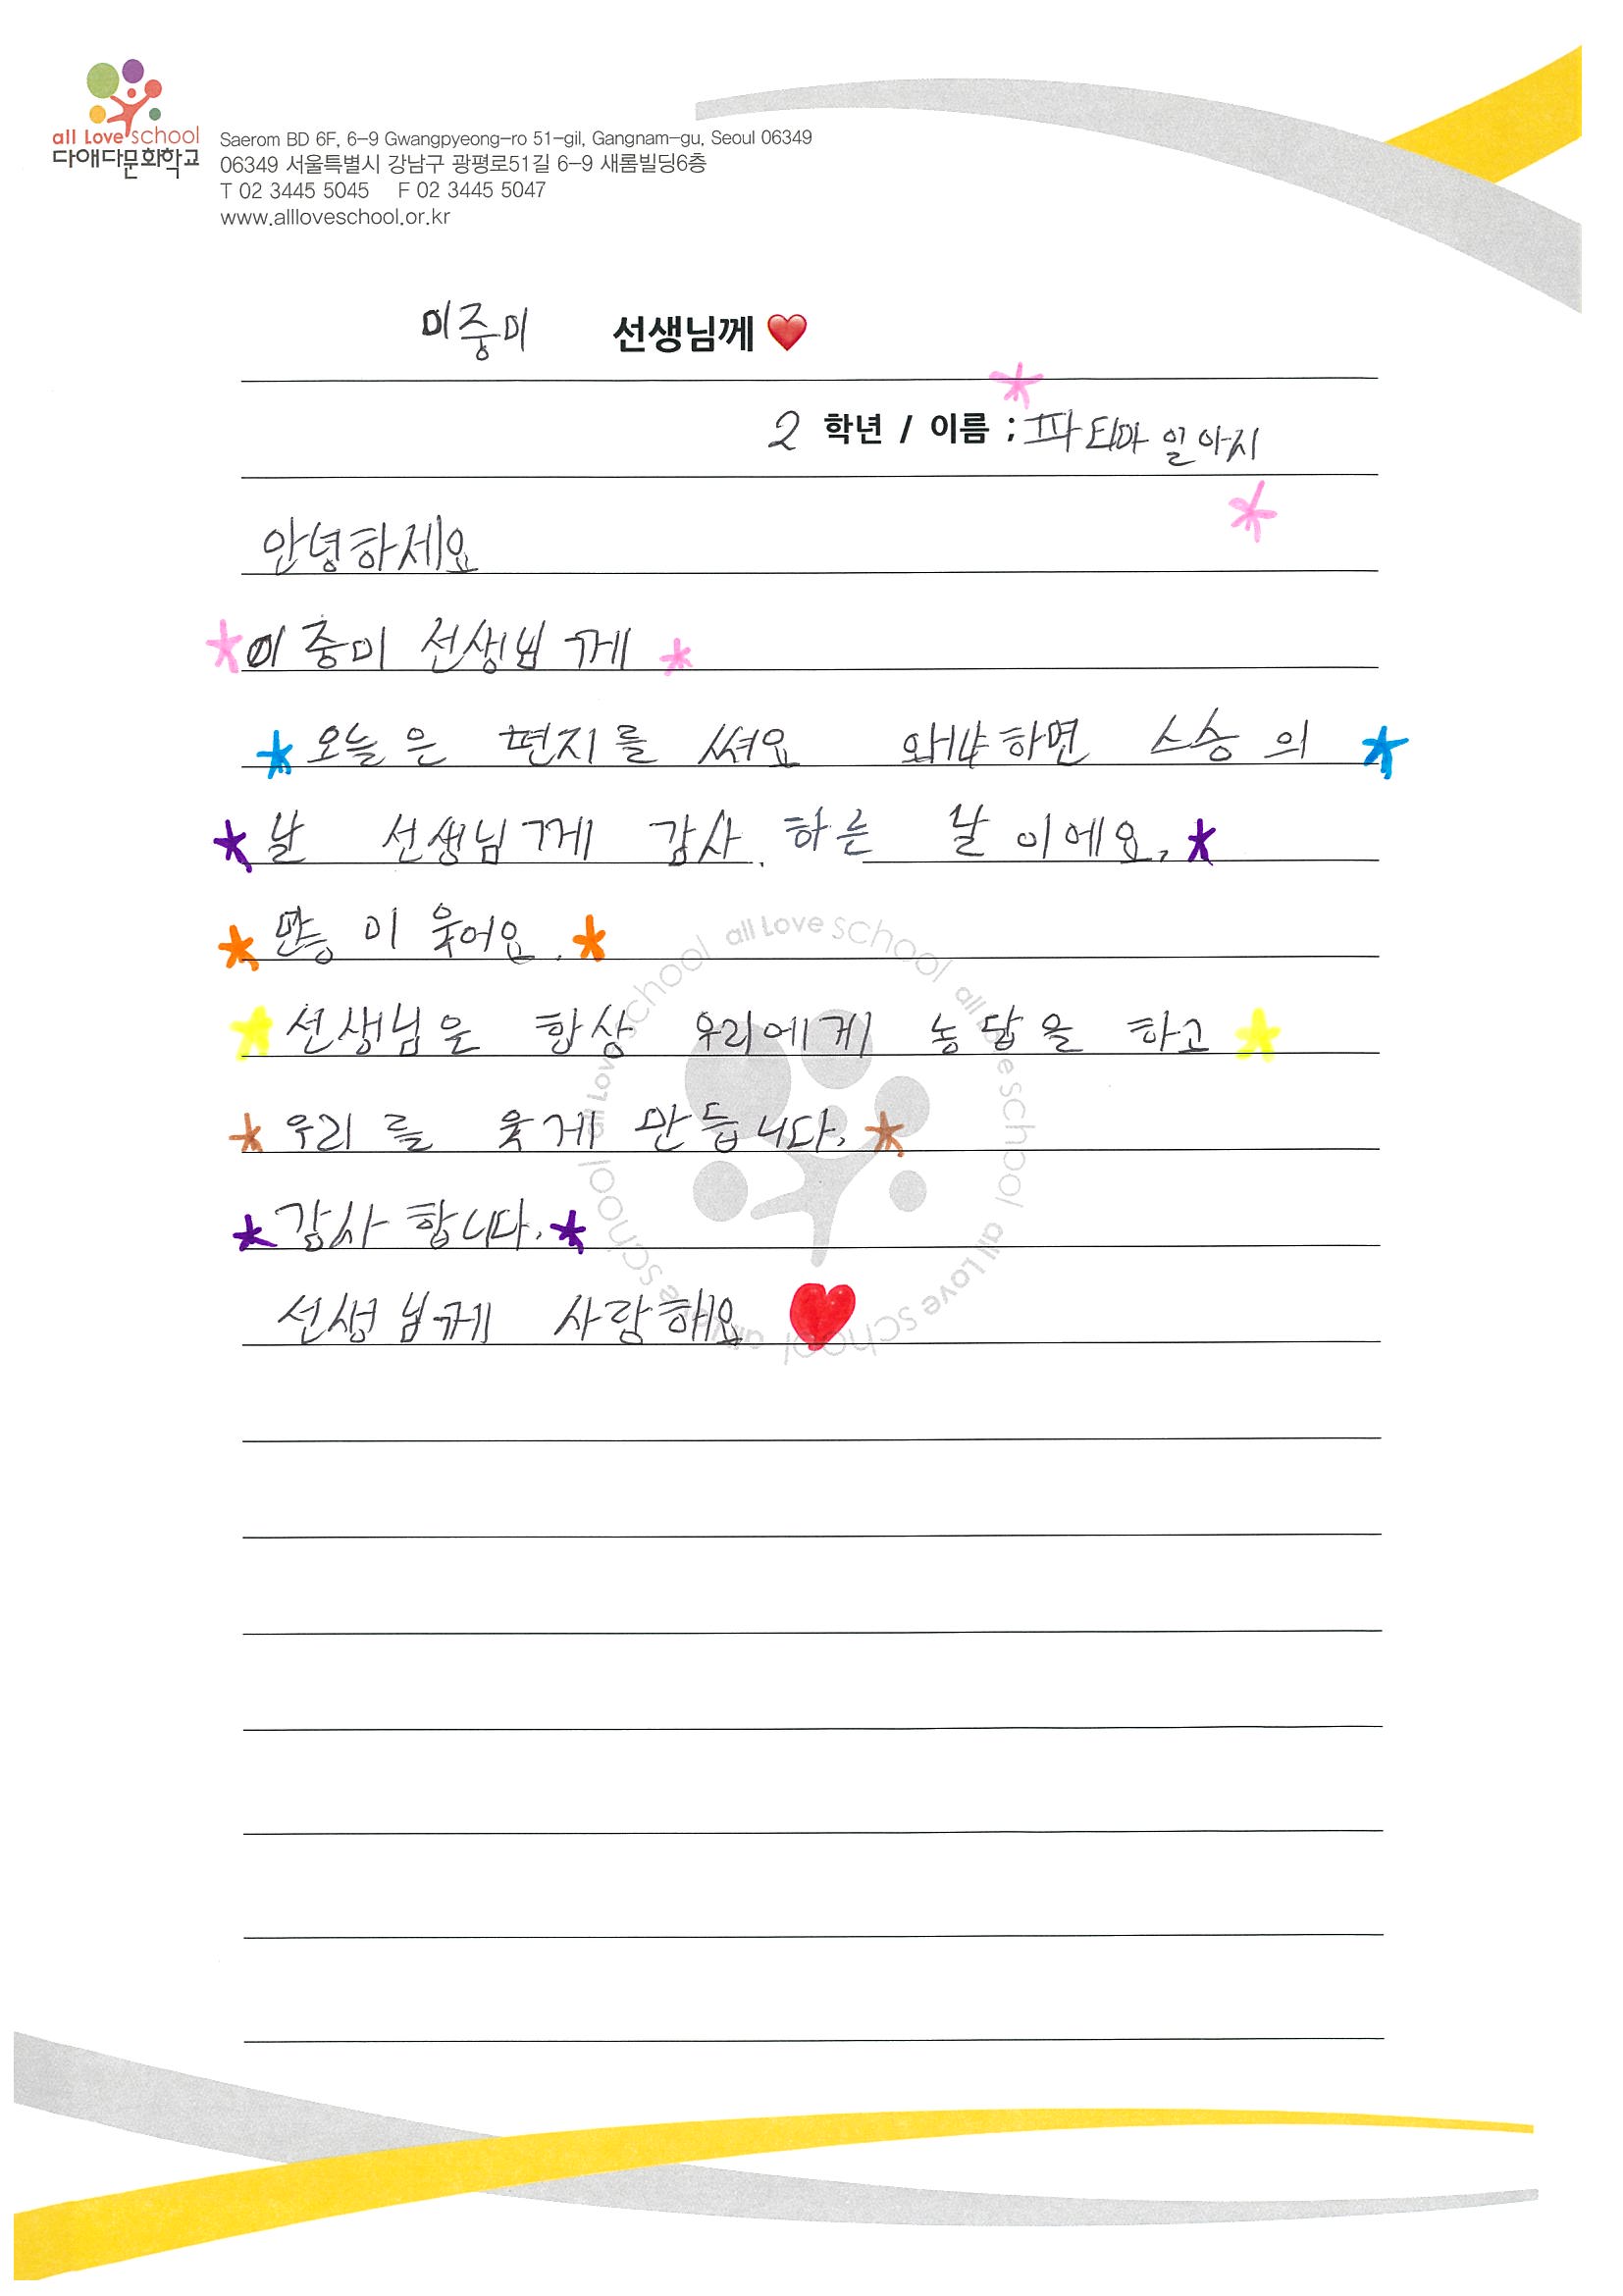 all Love school
다애다문화학교
Saerom BD 6F, 6-9 Gwangpyeong-ro 51-gil, Gangnam-gu, Seoul 06349
06349 서울특별시 강남구 광평로51길 6-9 새롬빌딩6층
T 02 3445 5045 F 02 3445 5047
www.allloveschool.or.kr
이중미 선생님께
2 학년 / 이름 ; 파티마 일아지
안녕하세요
이중미 선생님께
오늘은 편지를 써요 왜냐하면 스승의
날 선생님께 감사.하는 날이에요.
이 웃어요.
선생님은 항상 우리에게 농담을 하고
우리를 웃게 만듭니다.
감사합니다.
선생님께 사랑해요
all Love school all Love school all Love school all Love school all Love school